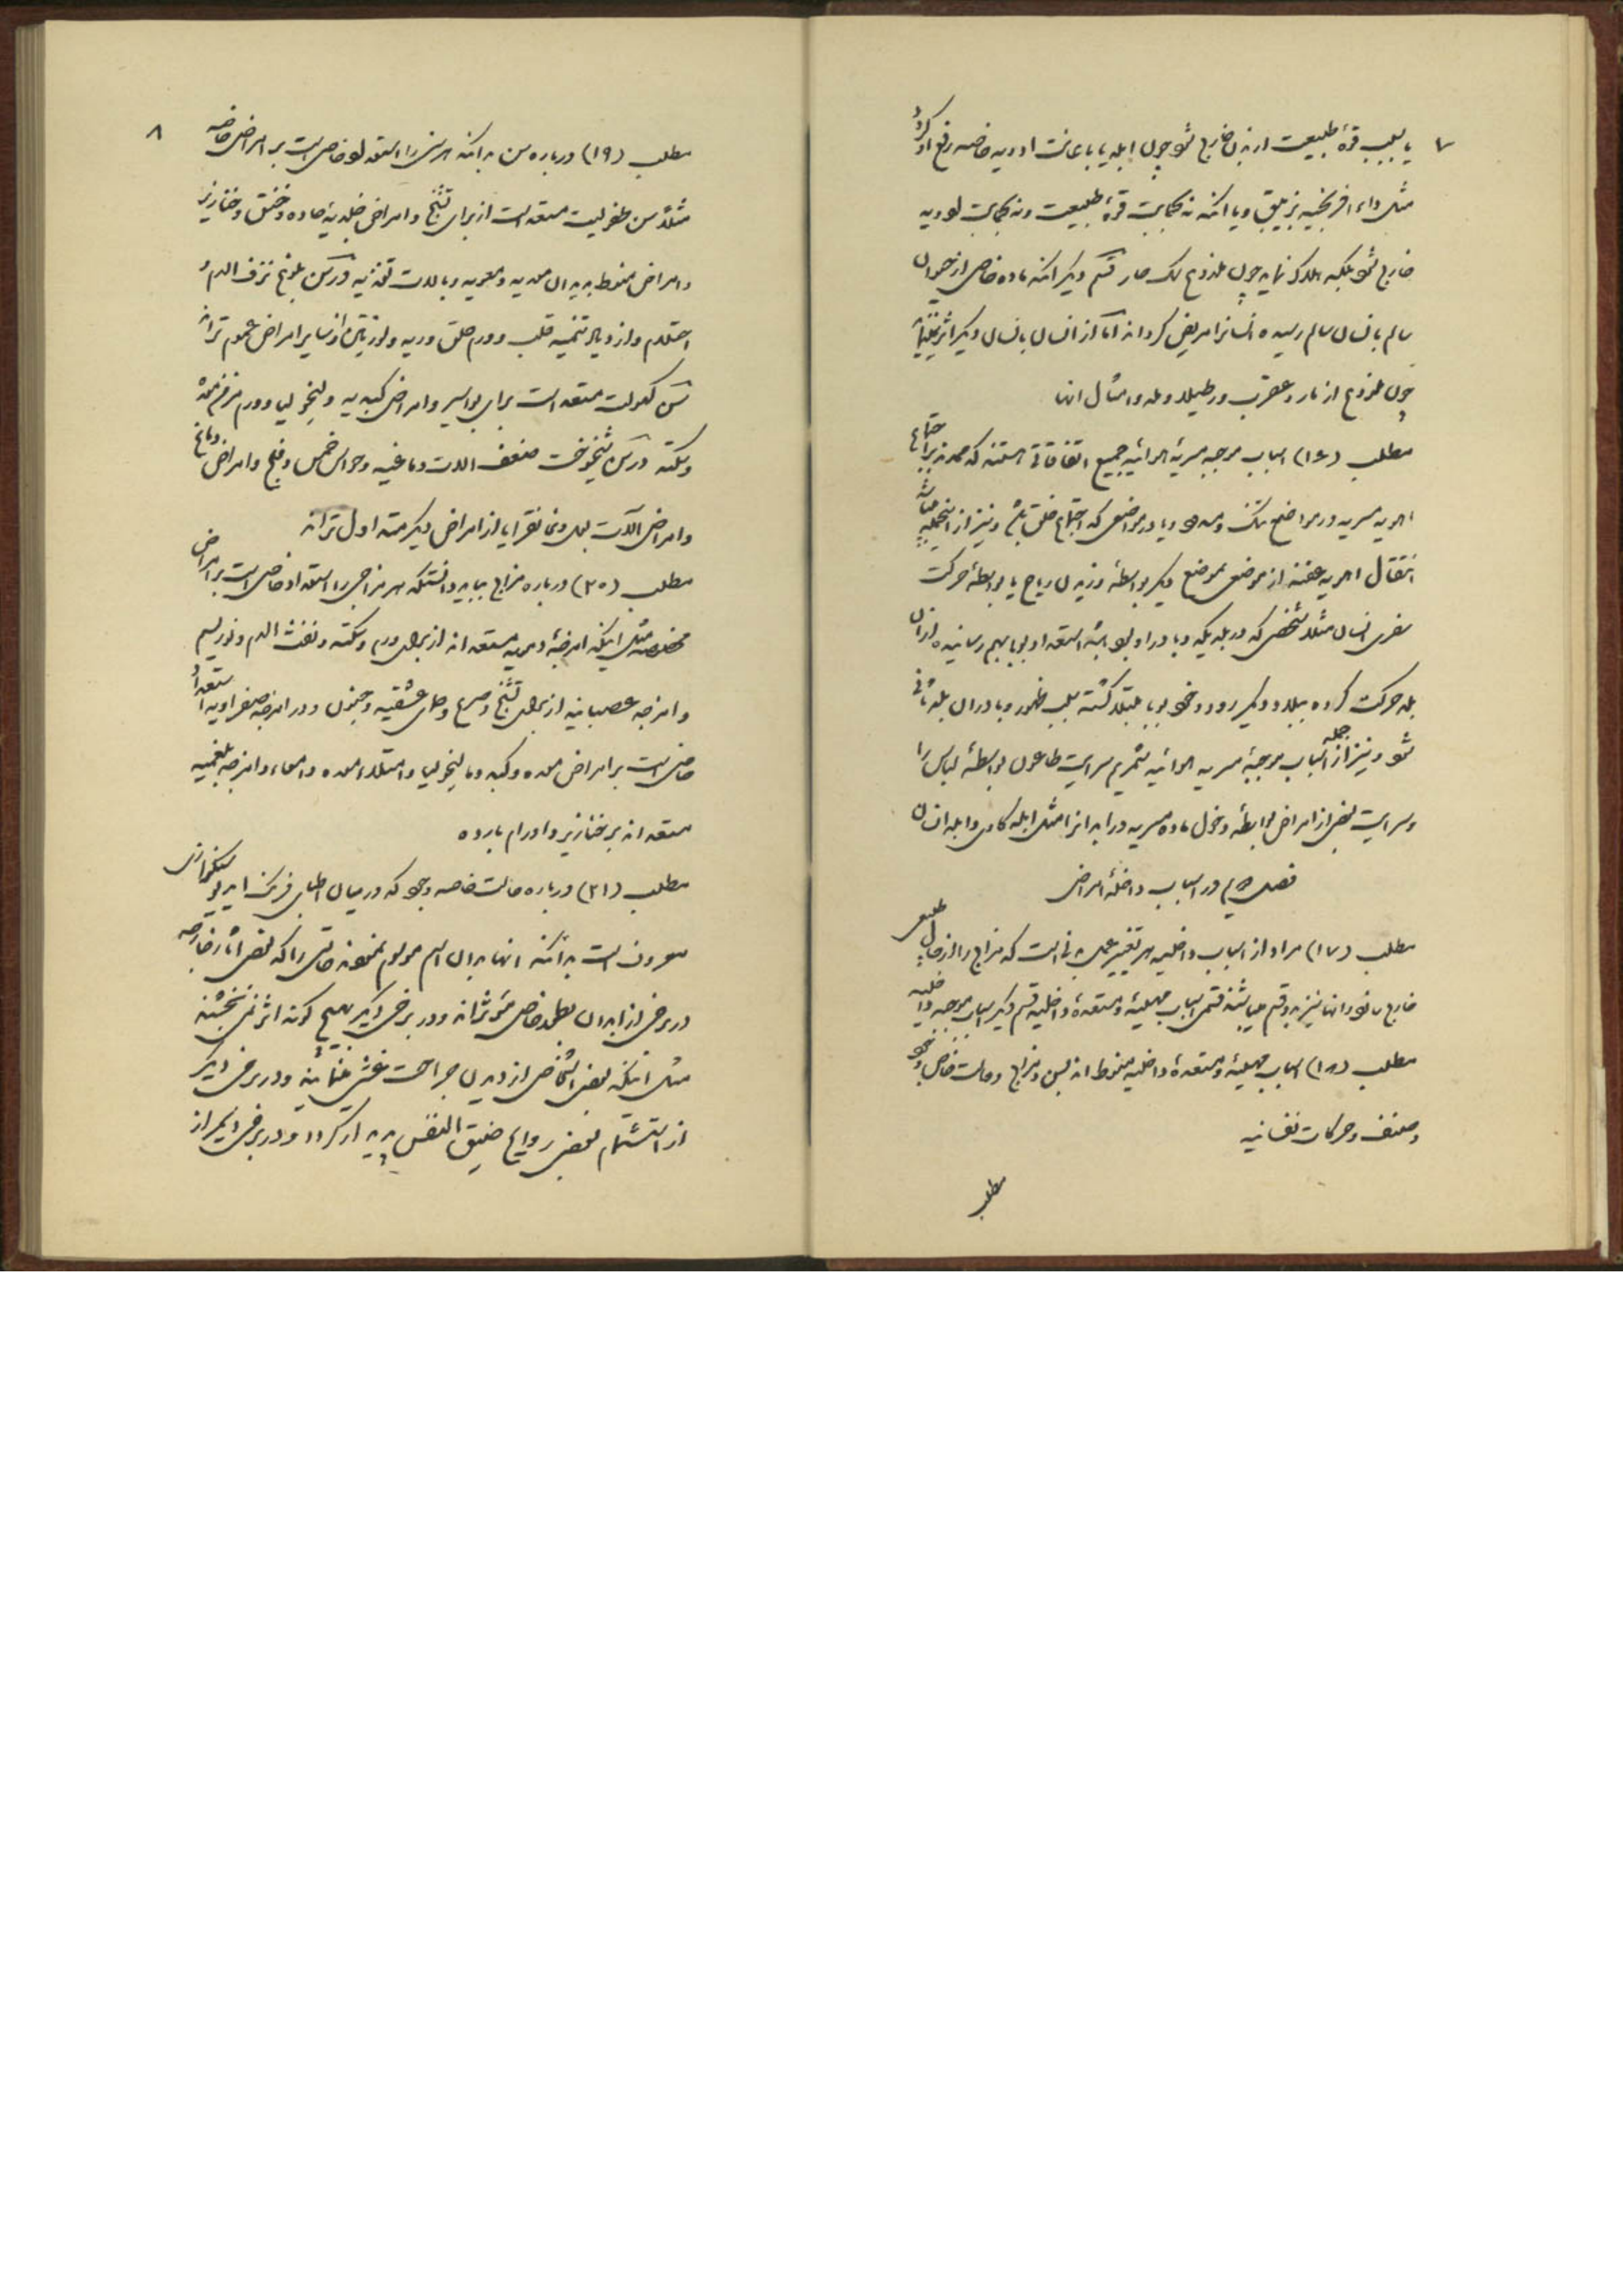 ۷
یا بسبب قوهٔ طبیعت از بدن خارج شود چون ابله یا باعانت ادویه خاصه رفع او گردد
مثل داء افرنجیه بزیبق و یا انکه نه بحمایت قوهٔ طبیعت و نه بحمایت ادویه
خارج شود بلکه هلاک نماید چون ملدوغ سک هار قسم دیکر انکه ماده خاص از حیوان
سالم بانسان سالم رسیده انسانرا مریض کرداند اما از انسان بانسان دیکر اثر
چون ملدوغ از مار و عقرب و رطیلا و امثال انها
مطلب (۱۶) اسباب موجبه مسریهٔ هوائیه جمیع اتفاقاتی هستند که ممد بر اجتماع
اهویه مسریه در مواضع تنک و مسدود و یا در مواضعی که اجتماع خلق باشد و نیز از اینجمله میباشد
انتقال اهویه عفنه از موضعی بموضع دیکر بواسطهٔ وزیدن ریاح یا بواسطهٔ حرکت
سفری انسان مثلا شخصی که در بلدیکه وبا در او بود استعداد وبا بهم رسانیده از ان
بلد حرکت کرده ببلد دیکر رود و خود بوبا مبتلا کشته سبب ظهور وبا در ان بلد ثانی
شود و نیز از جمله اسباب موجبهٔ مسریه هوائیه شمریم سرایت طاعون بواسطهٔ لباس را
و سرایت بعضی از امراض بواسطهٔ دخول ماده مسریه در ابدانرا مثل ابله کاوی و ابله انسان
فصل دویم در اسباب داخلهٔ امراض
مطلب (۱۷) مراد از اسباب داخلیه هر تغییر عمل بدنی است که مزاج را از حال طبیعی
خارج سازد و انها نیز بدو قسم میباشند قسمی اسباب مهیئه و مستعدهٔ داخلیه قسم دیکر اسباب موجبه داخلیه
مطلب (۱۸) اسباب مهیئهٔ و مستعدهٔ داخلیه منوط اند بسن و مزاج و حالت خاص وجود
و صنف و حرکات نفسانیه
مطلب
۸
مطلب (۱۹) درباره سن بدانکه هر سن را استعداد خاصی است بر امراض خاصه
مثلا سن طفولیت مستعد است از برای تشنج و امراض جلدیهٔ حاده و خناق و خنازیر
و امراض منوط به دیدان معدیه و معویه و بالات تغذیه و در سن بلوغ نزف الدم و
احتلام و ازدیاد تنمیه قلب و ورم حلق و ریه و از سایر امراض عموم تراند
سن کهولت مستعد است برای بواسیر و امراض کبدیه و مالیخولیا و ورم مزمن معده
و سکته در سن شیخوخت ضعف الات دماغیه و حواس خمس و فلج و امراض دماغ
و امراض الات بول و نقرایا از امراض دیکر مستعد اول تراند
مطلب (۲۰) درباره مزاج بباید دانستکه هر مزاجی را استعداد خاصی است بر امراض
مخصوصه مثل اینکه امزجهٔ دمویه مستعد اند از برای ورم و سکته و نفث الدم و
و امزجه عصبانیه از برای تشنج و صرع و حمای عشقیه و جنون و در امزجه صفراویه استعداد
خاصی است بر امراض معده و کبد و مالیخولیا و امتلاء معده و امعاء و امزجه بلغمیه
مستعد اند بر خنازیر و اورام بارده
مطلب (۲۱) درباره حالت خاصه وجود که در میان اطبای فرنک
معروف است بدانکه انها بدان اسم موسوم نموده حالتی را که بعضی اثار خارجه
در برخی از ابدان بطور خاصی مؤثر اند و در برخی دیکر بهیچ کونه اثر نمی بخشند
مثل انکه بعضی اشخاص از دیدن جراحت غشی مینمایند و در برخی دیکر
از استشمام بعضی روایح ضیق النفس پدیدار کردد و در برخی دیکر از